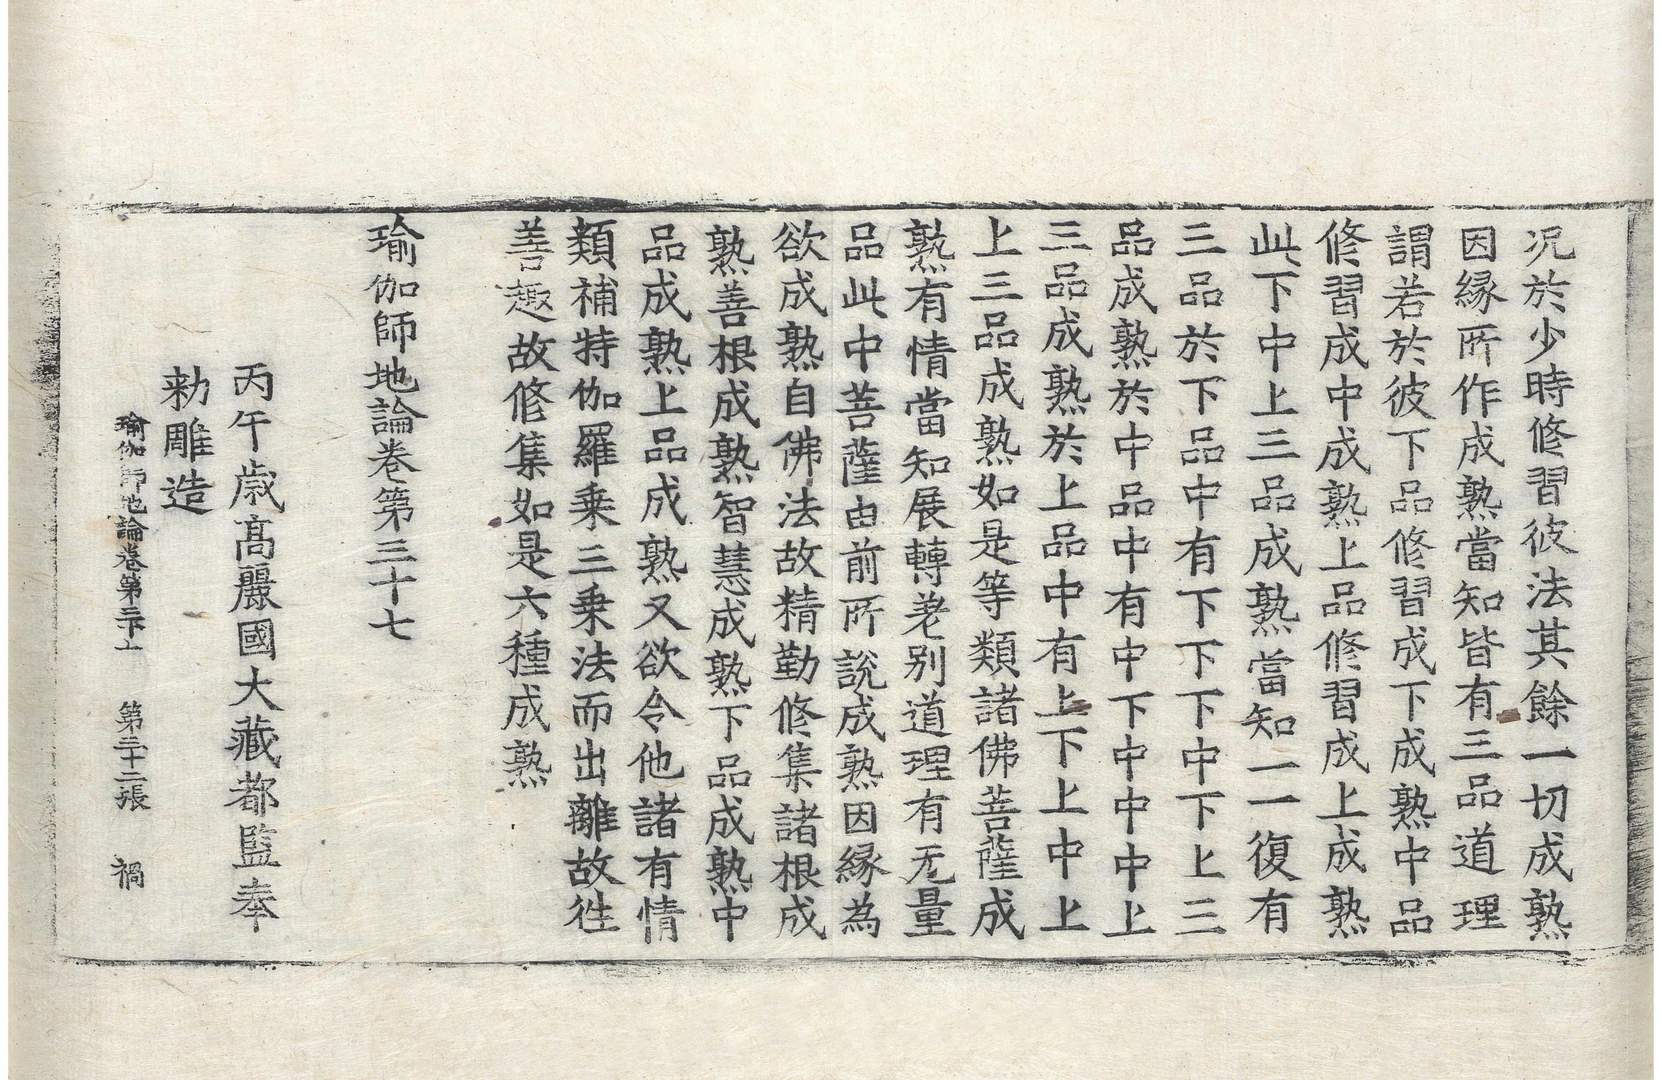 况於少時修習彼法其餘一切成熟
因縁所作成熟當知皆有三品道理
謂若於彼下品修習成下成熟中品
修習成中成熟上品修習成上成熟
此下中上三品成熟當知一一復有
三品於下品中有下下下中下上三
品成熟於中品中有中下中中中上
三品成熟於上品中有上下上中上
上三品成熟如是等類諸佛菩薩成
熟有情當知展轉差別道理有无量
品此中菩薩由前所說成熟因縁為
欲成熟自佛法故精勤修集諸根成
熟善根成熟智慧成熟下品成熟中
品成熟上品成熟又欲令他諸有情
類補特伽羅乗三乗法而出離故往
善趣故修集如是六種成熟
瑜伽師地論卷第三十七
丙午歲髙麗國大藏都監奉
勑雕造
瑜伽師地論卷第三十七 第二十二張 禍